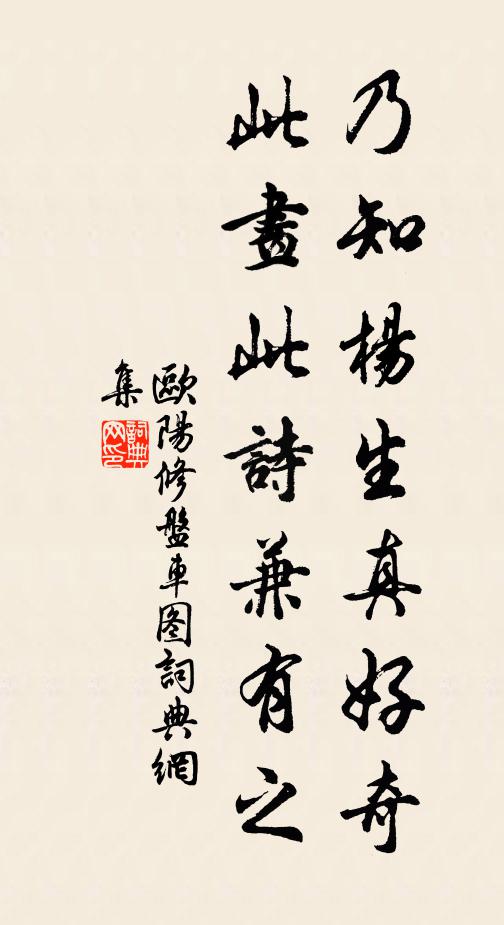 乃知楊生真好奇
此畫此詩兼有之
歐陽修盤車图詞典網
集
詞典网印